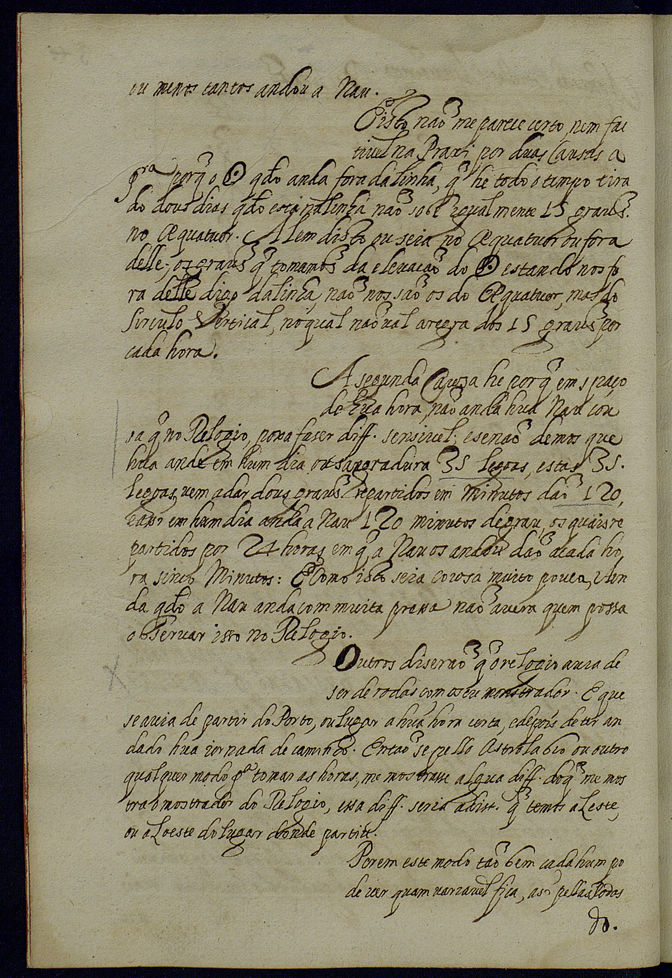 ou menos tantos andou a Nau.
E isto não me parece certo, nem fac
tivel na Praxi, por duas Causas. a
pra. porq̃ o ☉ qdo anda fora da linha, q̃ he todo o tempo tira
do dous dias qdo está na linha não sobe igualmente 15 graus.
no Æquator. Alem disto ou seia no Æquator ou fora
delle, os graus q̃ tomamos da elevação do ☉ estando nos fo
ra delle digo da linha, não nos são os do Æquator, mas do
Sirculo Vertical, no qual não val a regra dos 15 graus por
cada hora.
A segunda Causa he porq̃ em spaço
de hũa hora não anda hũa Nau cou
sa q̃ no Relogio, possa faser diff. sensivel; e senão demos que
hũa ande em hum dia ou sangradura 35 legoas, estas 35.
legoas vem a dar dous graus repartidos em Minutos dão 120,
em hum dia anda a Nau 120 minutos de grau, os quais re
partidos por 24 horas em q̃ a Nau os andou dão a cada ho
ra sinco Minutos: E como isto seia cousa muito pouca, e ain
da qdo a Nau anda com muita pressa não avera quem possa
observar isso no Relogio.
Outros diserão q̃ o relogio avia de
ser de rodas com o seu mostrador. E que
se avia de partir do Porto, ou lugar a hũa hora certa, e depois de ter an
dado hũa iornada de caminho. Então se pello Astrolabio ou outro
qualquer modo pa. tomar as horas, me mostrasse algũa diff. do q̃ me mos
tra o mostrador do Relogio, essa diff. seria a dist. q̃ temos a Leste,
ou a Loeste do lugar donde partir.
Porem este modo tão bem cada hum po
de ver quam variavel fica, asi pellas Rodas
do.